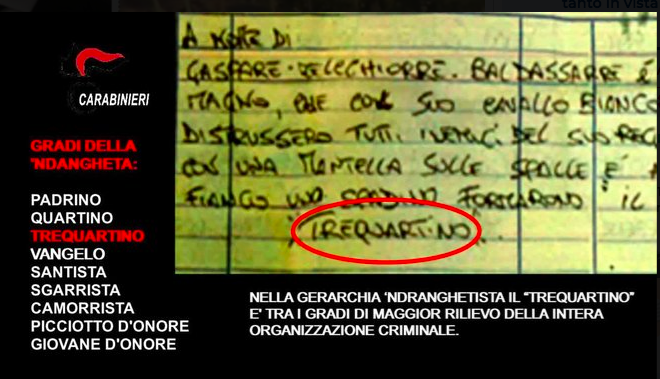 tanto in vista
CARABINIERI
GRADI DELLA
'NDANGHETA:
PADRINO
QUARTINO
TREQUARTINO
VANGELO
SANTISTA
SGARRISTA
CAMORRISTA
PICCIOTTO D'ONORE
GIOVANE D'ONORE
A NOME DI
GASPARE. MELCHIORRE. BALDASSARRE E
MAGNO, CHE CON SUO CAVALLO BIANCO
DISTRUSSERO TUTTI I NEMICI DEL SUO REG
CON UNA MANTELLA SULLE SPALLE E
FIANCO UNO SPADINO FORMARONO IL
TREQUARTINO
NELLA GERARCHIA ‘NDRANGHETISTA IL “TREQUARTINO”
E' TRA I GRADI DI MAGGIOR RILIEVO DELLA INTERA
ORGANIZZAZIONE CRIMINALE.